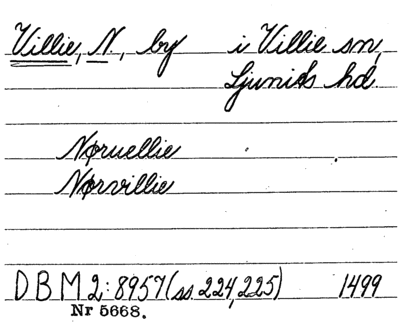 Villie, N, by i Villie sn,
Ljunits hd.
Nøruellie
Nørvillie
DBM 2:8957 (ss. 224,225) 1499
Nr 5668.